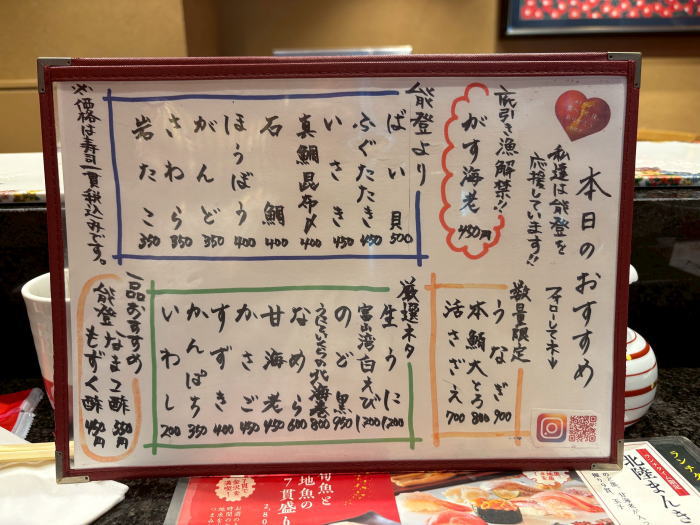 本日のおすすめ
私達は能登を
応援しています!!
フォローして下さい
底引き漁解禁!!
がす海老 450円
能登より
ばい貝 500
ふぐたたき 450
いさき 450
真鯛昆布〆 400
石鯛 400
ほうぼう 400
がんど 350
さわら 350
岩たこ 350
※価格は寿司一貫税込みです。
数量限定
うなぎ 900
本鮪大とろ 800
活さざえ 700
厳選ネタ
生うに 1200
富山湾白えび 1200
のど黒 950
うに、いくらの北海巻 800
なめら 600
甘海老 450
かさご 450
すずき 400
かんぱち 350
いわし 200
一品おすすめ
能登なまこ酢 550円
もずく酢 450円
旬魚と
地魚の
7貫盛り
ランチタ
北陸まんき